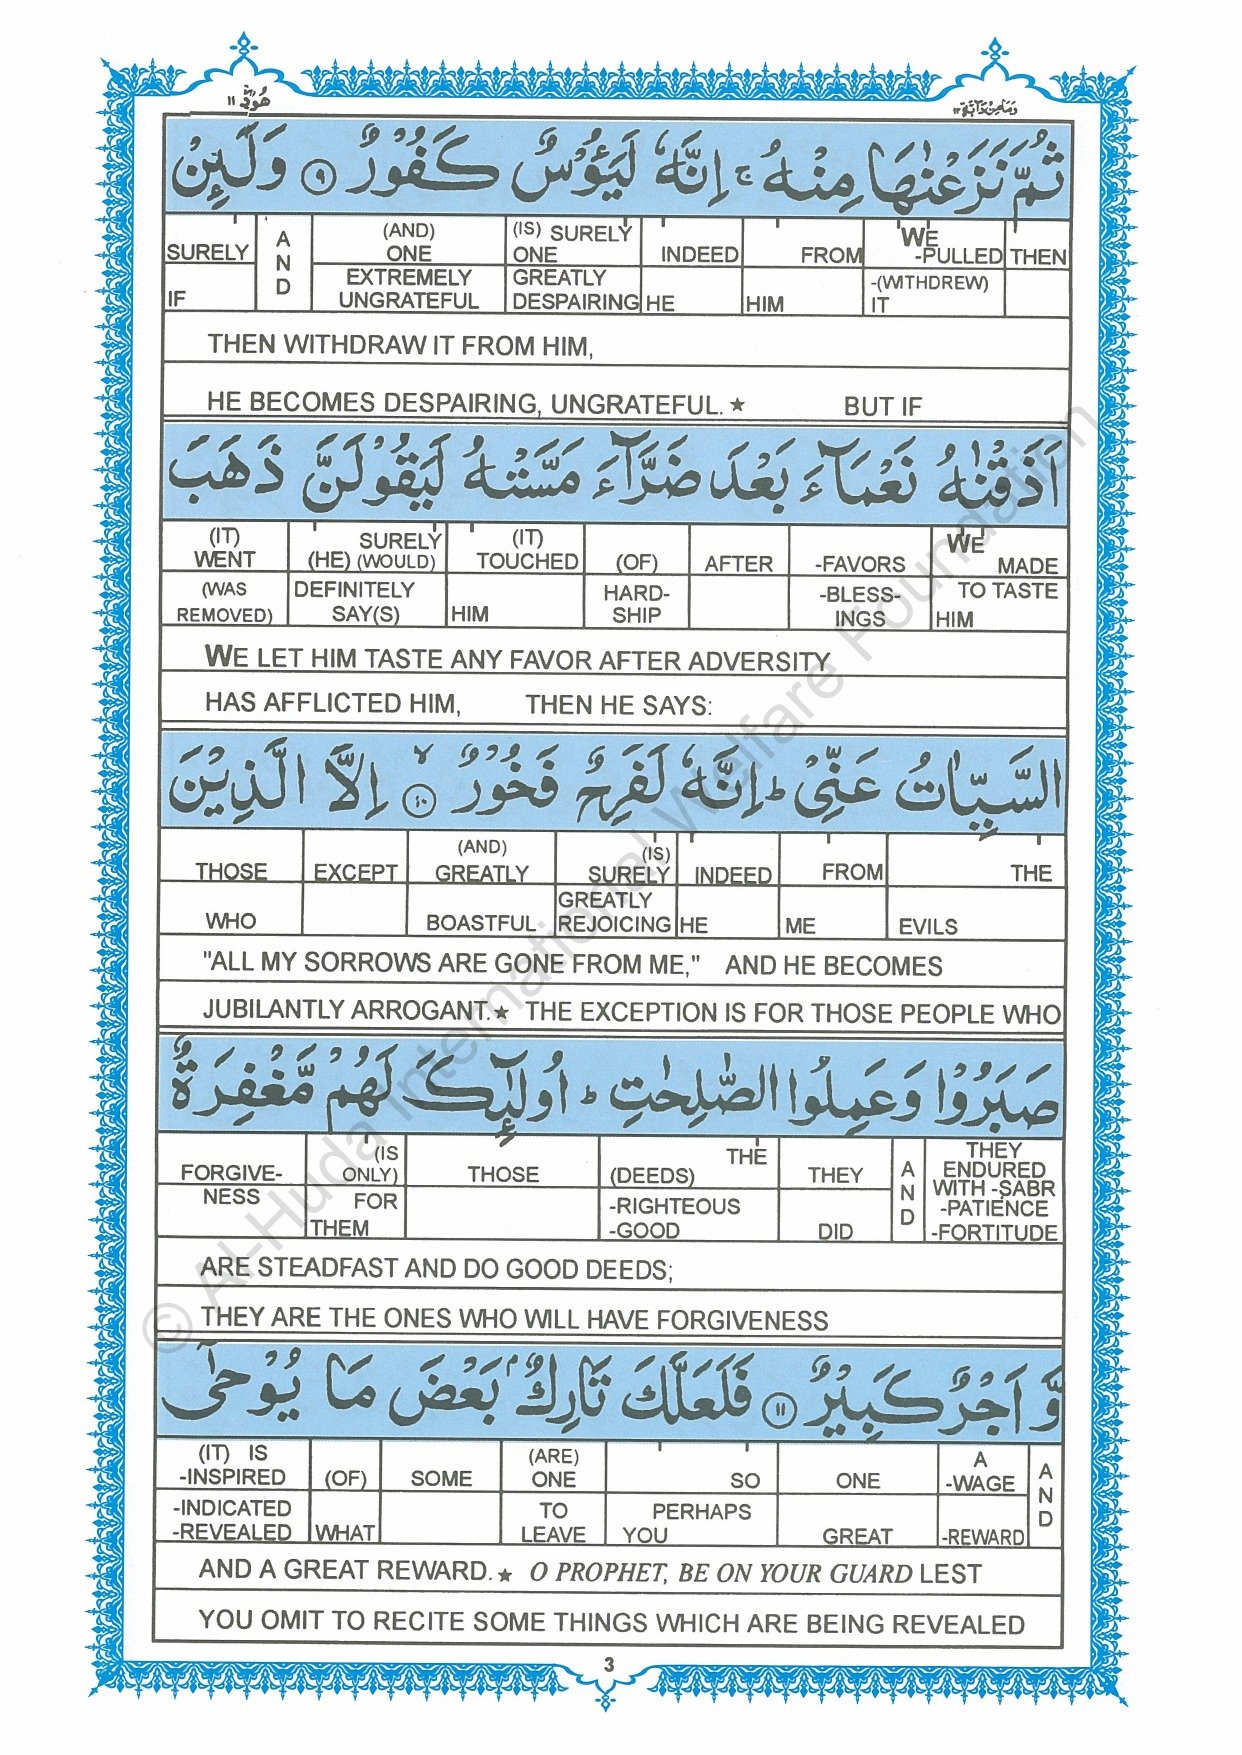 هُوْد ١١
وَمَا مِنْ دَآبَّةٍ ١٢
ثُمَّ نَزَعْنٰهَا مِنْهُ ۚ اِنَّهٗ لَيَـُٔوْسٌ كَفُوْرٌ ٩ وَلَئِنْ
SURELY IF
AND
(AND) ONE EXTREMELY UNGRATEFUL
(IS) SURELY ONE GREATLY DESPAIRING
INDEED HE
FROM HIM
WE -PULLED -(WITHDREW) IT
THEN
THEN WITHDRAW IT FROM HIM,
HE BECOMES DESPAIRING, UNGRATEFUL. ★ BUT IF
اَذَقْنٰهُ نَعْمَآءَ بَعْدَ ضَرَّآءَ مَسَّتْهُ لَيَقُوْلَنَّ ذَهَبَ
(IT) WENT (WAS REMOVED)
SURELY (HE) (WOULD) DEFINITELY SAY(S)
(IT) TOUCHED HIM
(OF) HARD-SHIP
AFTER
-FAVORS -BLESS-INGS
WE MADE TO TASTE HIM
WE LET HIM TASTE ANY FAVOR AFTER ADVERSITY
HAS AFFLICTED HIM, THEN HE SAYS:
السَّيِّاٰتُ عَنِّيْ ؕ اِنَّهٗ لَفَرِحٌ فَخُوْرٌ ۙ ١٠ اِلَّا الَّذِيْنَ
THOSE WHO
EXCEPT
(AND) GREATLY BOASTFUL
(IS) SURELY GREATLY REJOICING
INDEED HE
FROM ME
THE EVILS
"ALL MY SORROWS ARE GONE FROM ME," AND HE BECOMES
JUBILANTLY ARROGANT. ★ THE EXCEPTION IS FOR THOSE PEOPLE WHO
صَبَرُوْا وَعَمِلُوا الصّٰلِحٰتِ ؕ اُولٰٓئِكَ لَهُمْ مَّغْفِرَةٌ
FORGIVE-NESS
(IS ONLY) FOR THEM
THOSE
THE (DEEDS) -RIGHTEOUS -GOOD
THEY DID
AND
THEY ENDURED WITH -SABR -PATIENCE -FORTITUDE
ARE STEADFAST AND DO GOOD DEEDS;
THEY ARE THE ONES WHO WILL HAVE FORGIVENESS
وَّ اَجْرٌ كَبِيْرٌ ١١ فَلَعَلَّكَ تَارِكٌۢ بَعْضَ مَا يُوْحٰٓى
(IT) IS -INSPIRED -INDICATED -REVEALED
(OF) WHAT
SOME
(ARE) ONE TO LEAVE
SO PERHAPS YOU
ONE GREAT
A -WAGE -REWARD
AND
AND A GREAT REWARD. ★ O PROPHET, BE ON YOUR GUARD LEST
YOU OMIT TO RECITE SOME THINGS WHICH ARE BEING REVEALED
3
© Al-Huda International Welfare Foundation